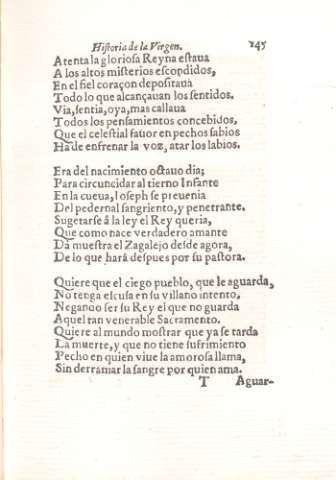 Historia de la Virgen. 145
Atenta la gloriosa Reyna estaua
A los altos misterios escondidos,
En el fiel coraçon depositaua
Todo lo que alcançauan los sentidos.
Via, sentia, oya, mas callaua
Todos los pensamientos concebidos,
Que el celestial fauor en pechos sabios
Ha de enfrenar la voz, atar los labios.
Era del nacimiento octauo dia;
Para circuncidar al tierno Infante
En la cueua, Ioseph se preuenia
Del pedernal sangriento, y penetrante.
Sugetarse à la ley el Rey queria,
Que como nace verdadero amante
Da muestra el Zagalejo desde agora,
De lo que harà despues por su pastora.
Quiere que el ciego pueblo, que le aguarda,
No tenga escusa en su villano intento,
Negando ser su Rey el que no guarda
Aquel tan venerable Sacramento.
Quiere al mundo mostrar que ya se tarda
La muerte, y que no tiene sufrimiento
Pecho en quien viue la amorosa llama,
Sin derramar la sangre por quien ama.
T Aguar-